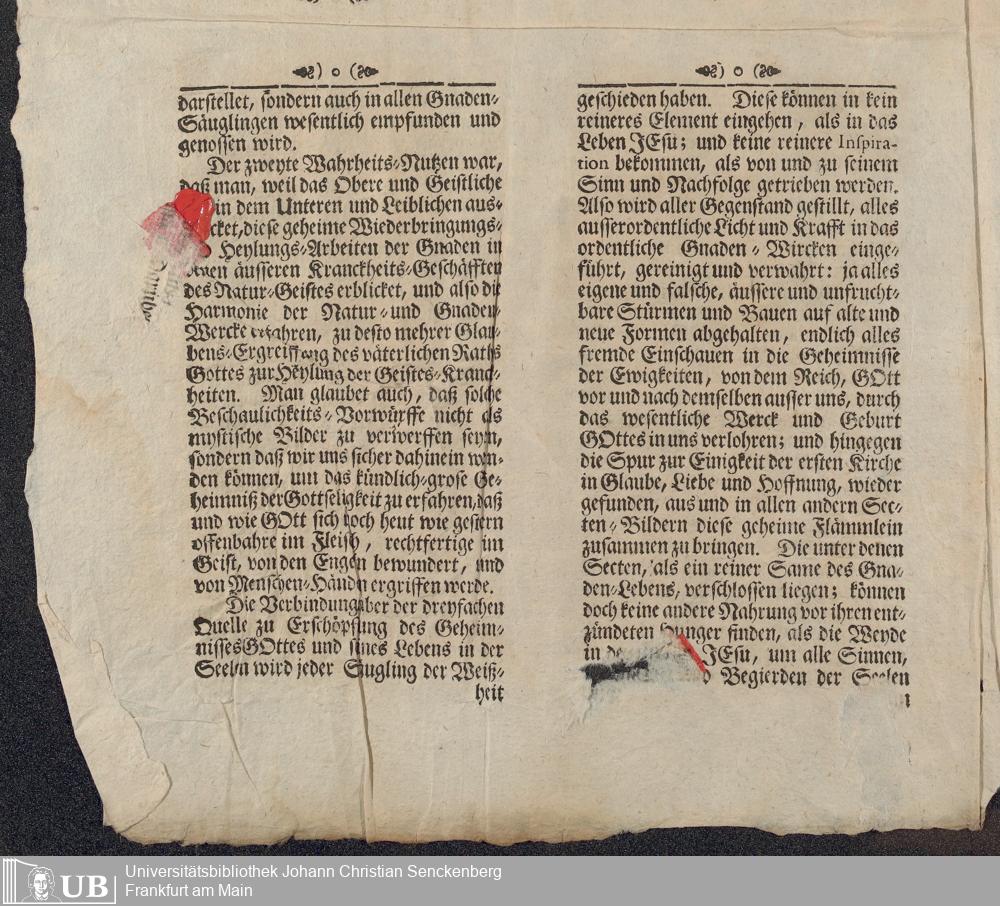 ) o (
darstellet, sondern auch in allen Gnaden-
Säuglingen wesentlich empfunden und
genossen wird.
Der zweyte Wahrheits-Nutzen war,
daß man, weil das Obere und Geistliche
in dem Unteren und Leiblichen aus-
cket, diese geheime Wiederbringungs-
Heylungs-Arbeiten der Gnaden in
denen äusseren Kranckheits-Geschäfften
des Natur-Geistes erblicket, und also die
Harmonie der Natur- und Gnaden-
Wercke erfahren, zu desto mehrer Glau-
bens-Ergreiffung des väterlichen Raths
Gottes zur Heylung der Geistes-Kranck-
heiten. Man glaubet auch, daß solche
Beschaulichkeits-Vorwürffe nicht als
mystische Bilder zu verwerffen seyn,
sondern daß wir uns sicher dahinein wen-
den können, um das kündlich-grose Ge-
heimniß der Gottseligkeit zu erfahren, daß
und wie GOtt sich noch heut wie gestern
offenbahre im Fleisch, rechtfertige im
Geist, von den Engeln bewundert, und
von Menschen-Händn ergriffen werde.
Die Verbindung aber der dreyfachen
Quelle zu Erschöpffung des Geheim-
nisses GOttes und seines Lebens in der
Seeln wird jeder Säugling der Weiß-
heit
) o (
geschieden haben. Diese können in kein
reineres Element eingehen, als in das
Leben JEsu; und keine reinere Inspira-
tion bekommen, als von und zu seinem
Sinn und Nachfolge getrieben werden.
Also wird aller Gegenstand gestillt, alles
ausserordentliche Licht und Krafft in das
ordentliche Gnaden-Wircken einge-
führt, gereinigt und verwahrt: ja alles
eigene und falsche, äussere und unfrucht-
bare Stürmen und Bauen auf alte und
neue Formen abgehalten, endlich alles
fremde Einschauen in die Geheimnisse
der Ewigkeiten, von dem Reich, GOtt
vor und nach demselben ausser uns, durch
das wesentliche Werck und Geburt
GOttes in uns verlohren; und hingegen
die Spur zur Einigkeit der ersten Kirche
in Glaube, Liebe und Hoffnung, wieder
gefunden, aus und in allen andern Sec-
ten-Bildern diese geheime Flämmlein
zusammen zu bringen. Die unter denen
Secten, als ein reiner Same des Gna-
den-Lebens, verschlossen liegen; können
doch keine andere Nahrung vor ihren ent-
zündeten Hunger finden, als die Weyde
in JEsu, um alle Sinnen,
Begierden der Seelen
UB
Universitätsbibliothek Johann Christian Senckenberg
Frankfurt am Main